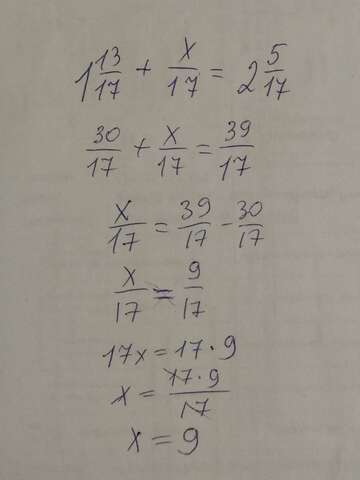 1 13/17 + x/17 = 2 5/17
30/17 + x/17 = 39/17
x/17 = 39/17 - 30/17
x/17 = 9/17
17x = 17 · 9
x = 17 · 9/17
x = 9